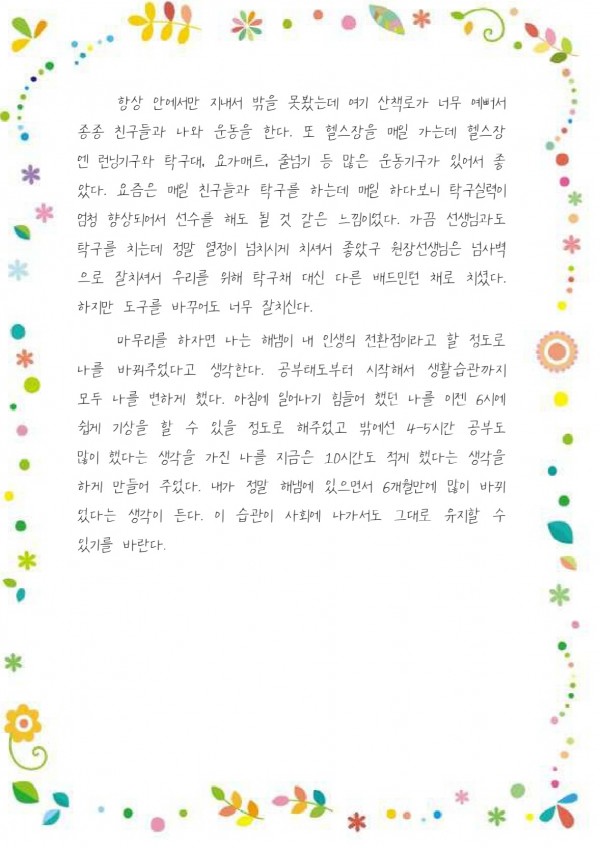 항상 안에서만 지내서 밖을 못봤는데 여기 산책로가 너무 예뻐서
종종 친구들과 나와 운동을 한다. 또 헬스장을 매일 가는데 헬스장
엔 런닝기구와 탁구대, 요가매트, 줄넘기 등 많은 운동기구가 있어서 좋
았다. 요즘은 매일 친구들과 탁구를 하는데 매일 하다보니 탁구실력이
엄청 향상되어서 선수를 해도 될 것 같은 느낌이었다. 가끔 선생님과도
탁구를 치는데 정말 열정이 넘치시게 치셔서 좋았구 원장선생님은 넘사벽
으로 잘치셔서 우리를 위해 탁구채 대신 다른 배드민턴 채로 치셨다.
하지만 도구를 바꾸어도 너무 잘치신다.
마무리를 하자면 나는 해냄이 내 인생의 전환점이라고 할 정도로
나를 바꿔주었다고 생각한다. 공부태도부터 시작해서 생활습관까지
모두 나를 변하게 했다. 아침에 일어나기 힘들어 했던 나를 이젠 6시에
쉽게 기상을 할 수 있을 정도로 해주었고 밖에선 4-5시간 공부도
많이 했다는 생각을 가진 나를 지금은 10시간도 적게 했다는 생각을
하게 만들어 주었다. 내가 정말 해냄에 있으면서 6개월만에 많이 바뀌
었다는 생각이 든다. 이 습관이 사회에 나가서도 그대로 유지할 수
있기를 바란다.